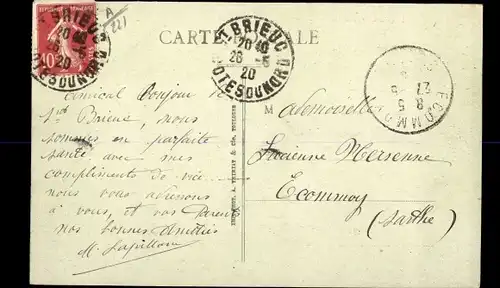 221
CARTE POSTALE
ST BRIEUC
20 40
26 - 5
20
COTES DU NORD
ST BRIEUC
20 40
26 - 5
20
COTES DU NORD
ECOMMOY
8 5
27 5
10
Amical Bonjour de
St Brieuc, nous
sommes en parfaite
santé avec mes
compliments de vie
nous vous adressons
à vous, et vos Parents
nos bonnes amitiés
Mademoiselle
Lucienne Mersenne
Ecommoy
(Sarthe)